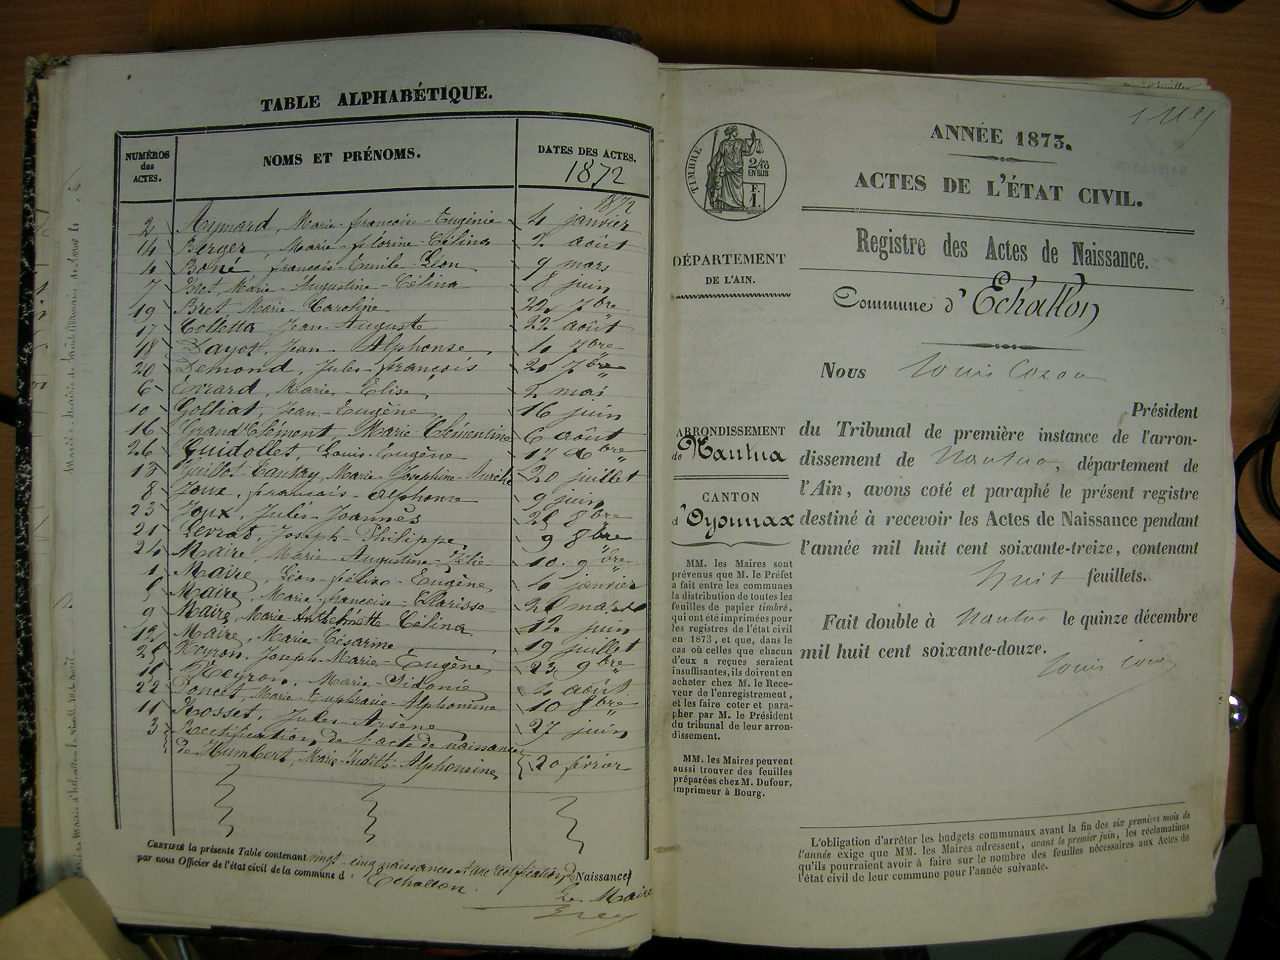 TABLE ALPHABÉTIQUE.
NUMÉROS des ACTES. NOMS ET PRÉNOMS. DATES DES ACTES.
1872
1872
2 Aymard, Marie-françoise-Eugénie 4 janvier
14 Berger, Marie-florine-Célina 2 août
4 Boné françois-Emile-Léon 9 mars
7 Bret, Marie-Augustine-Célina 8 juin
19 Bret Marie-Caroline 22 7bre
17 Colletta Jean-Auguste 22 août
18 Dayot, Jean-Alphonse 4 7bre
20 Demond, Jules-françois 21 7bre
6 Evrard, Marie-Elise 2 mai
10 Golliat, Jean-Eugène 16 juin
16 Grand Clément, Marie-Clémentine 6 août
26 Guidollet, Louis-Eugène 12 10bre
13 Guillot Marie-Joséphine 20 juillet
8 Joux, françois-Alphonse 9 juin
23 Joux, Jules-Joannès 21 8bre
21 Levrat, Joseph-Philippe 9 8bre
24 Maire, Marie-Augustine 10 9bre
1 Maire, Léon-félix-Eugène 4 janvier
5 Maire, Marie-françoise-Clarisse 21 mars
9 Maire, Marie Anthelmette-Célina 12 juin
12 Maire, Marie-Césarine 19 juillet
25 Neyron, Joseph-Marie-Eugène 23 9bre
15 Neyron, Marie-Sidonie 4 août
22 Poncet, Marie Euphrasie-Alphonsine 10 8bre
11 Rosset, Jules-Arsène 27 juin
3 Rectification de l'acte de naissance
de Humbert, Marie-Judith-Alphonsine 20 février
CERTIFIÉ la présente Table contenant vingt-cinq naissances et une rectification de Naissance
par nous Officier de l'état civil de la commune d'Echallon.
Le Maire
ANNÉE 1873.
ACTES DE L'ÉTAT CIVIL.
Registre des Actes de Naissance.
Commune d'Echallon
TIMBRE
2/10
EN SUS
F.
1.
DÉPARTEMENT
DE L'AIN.
ARRONDISSEMENT
de Nantua
CANTON
d'Oyonnax
MM. les Maires sont
prévenus que M. le Préfet
a fait entre les communes
la distribution de toutes les
feuilles de papier timbré,
qui ont été imprimées pour
les registres de l'état civil
en 1873, et que, dans le
cas où celles que chacun
d'eux a reçues seraient
insuffisantes, ils doivent en
acheter chez M. le Rece-
veur de l'enregistrement,
et les faire coter et para-
pher par M. le Président
du tribunal de leur arron-
dissement.
MM. les Maires peuvent
aussi trouver des feuilles
préparées chez M. Dufour,
imprimeur à Bourg.
Nous Louis Cozon
Président
du Tribunal de première instance de l'arron-
dissement de Nantua, département de
l'Ain, avons coté et paraphé le présent registre
destiné à recevoir les Actes de Naissance pendant
l'année mil huit cent soixante-treize, contenant
huit feuillets.
Fait double à Nantua le quinze décembre
mil huit cent soixante-douze.
Louis Cozon
L'obligation d'arrêter les budgets communaux avant la fin des six premiers mois de
l'année exige que MM. les Maires adressent, avant le premier juin, les réclamations
qu'ils pourraient avoir à faire sur le nombre des feuilles nécessaires aux Actes de
l'état civil de leur commune pour l'année suivante.